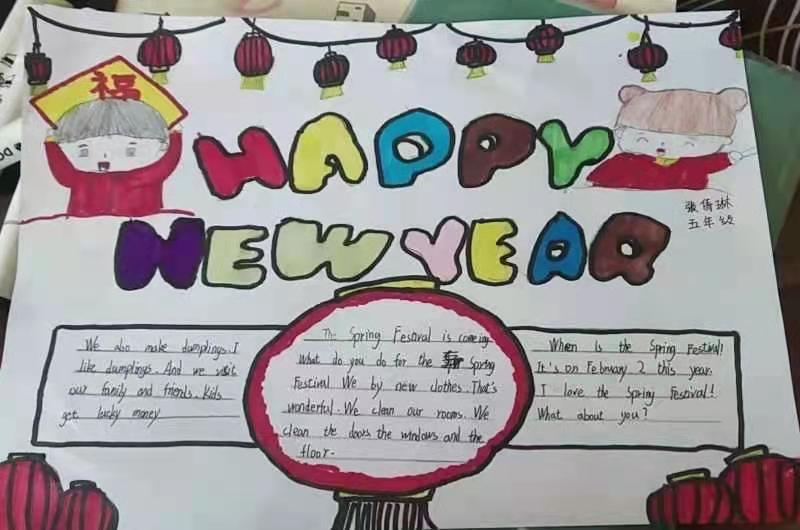 福
HAPPY
NEW YEAR
张倩琳
五年级
We also make dumplings. I
like dumplings. And we visit
our family and friends. Kids
get lucky money
The Spring Festival is comeing
What do you do for the Spring
Festival We by new clothes. That's
wonderful. We clean our rooms. We
clean the doors the windows and the
floor.
When Is the Spring Festival!
It's on February 2 this year.
I love the Spring Festival!
What about you?